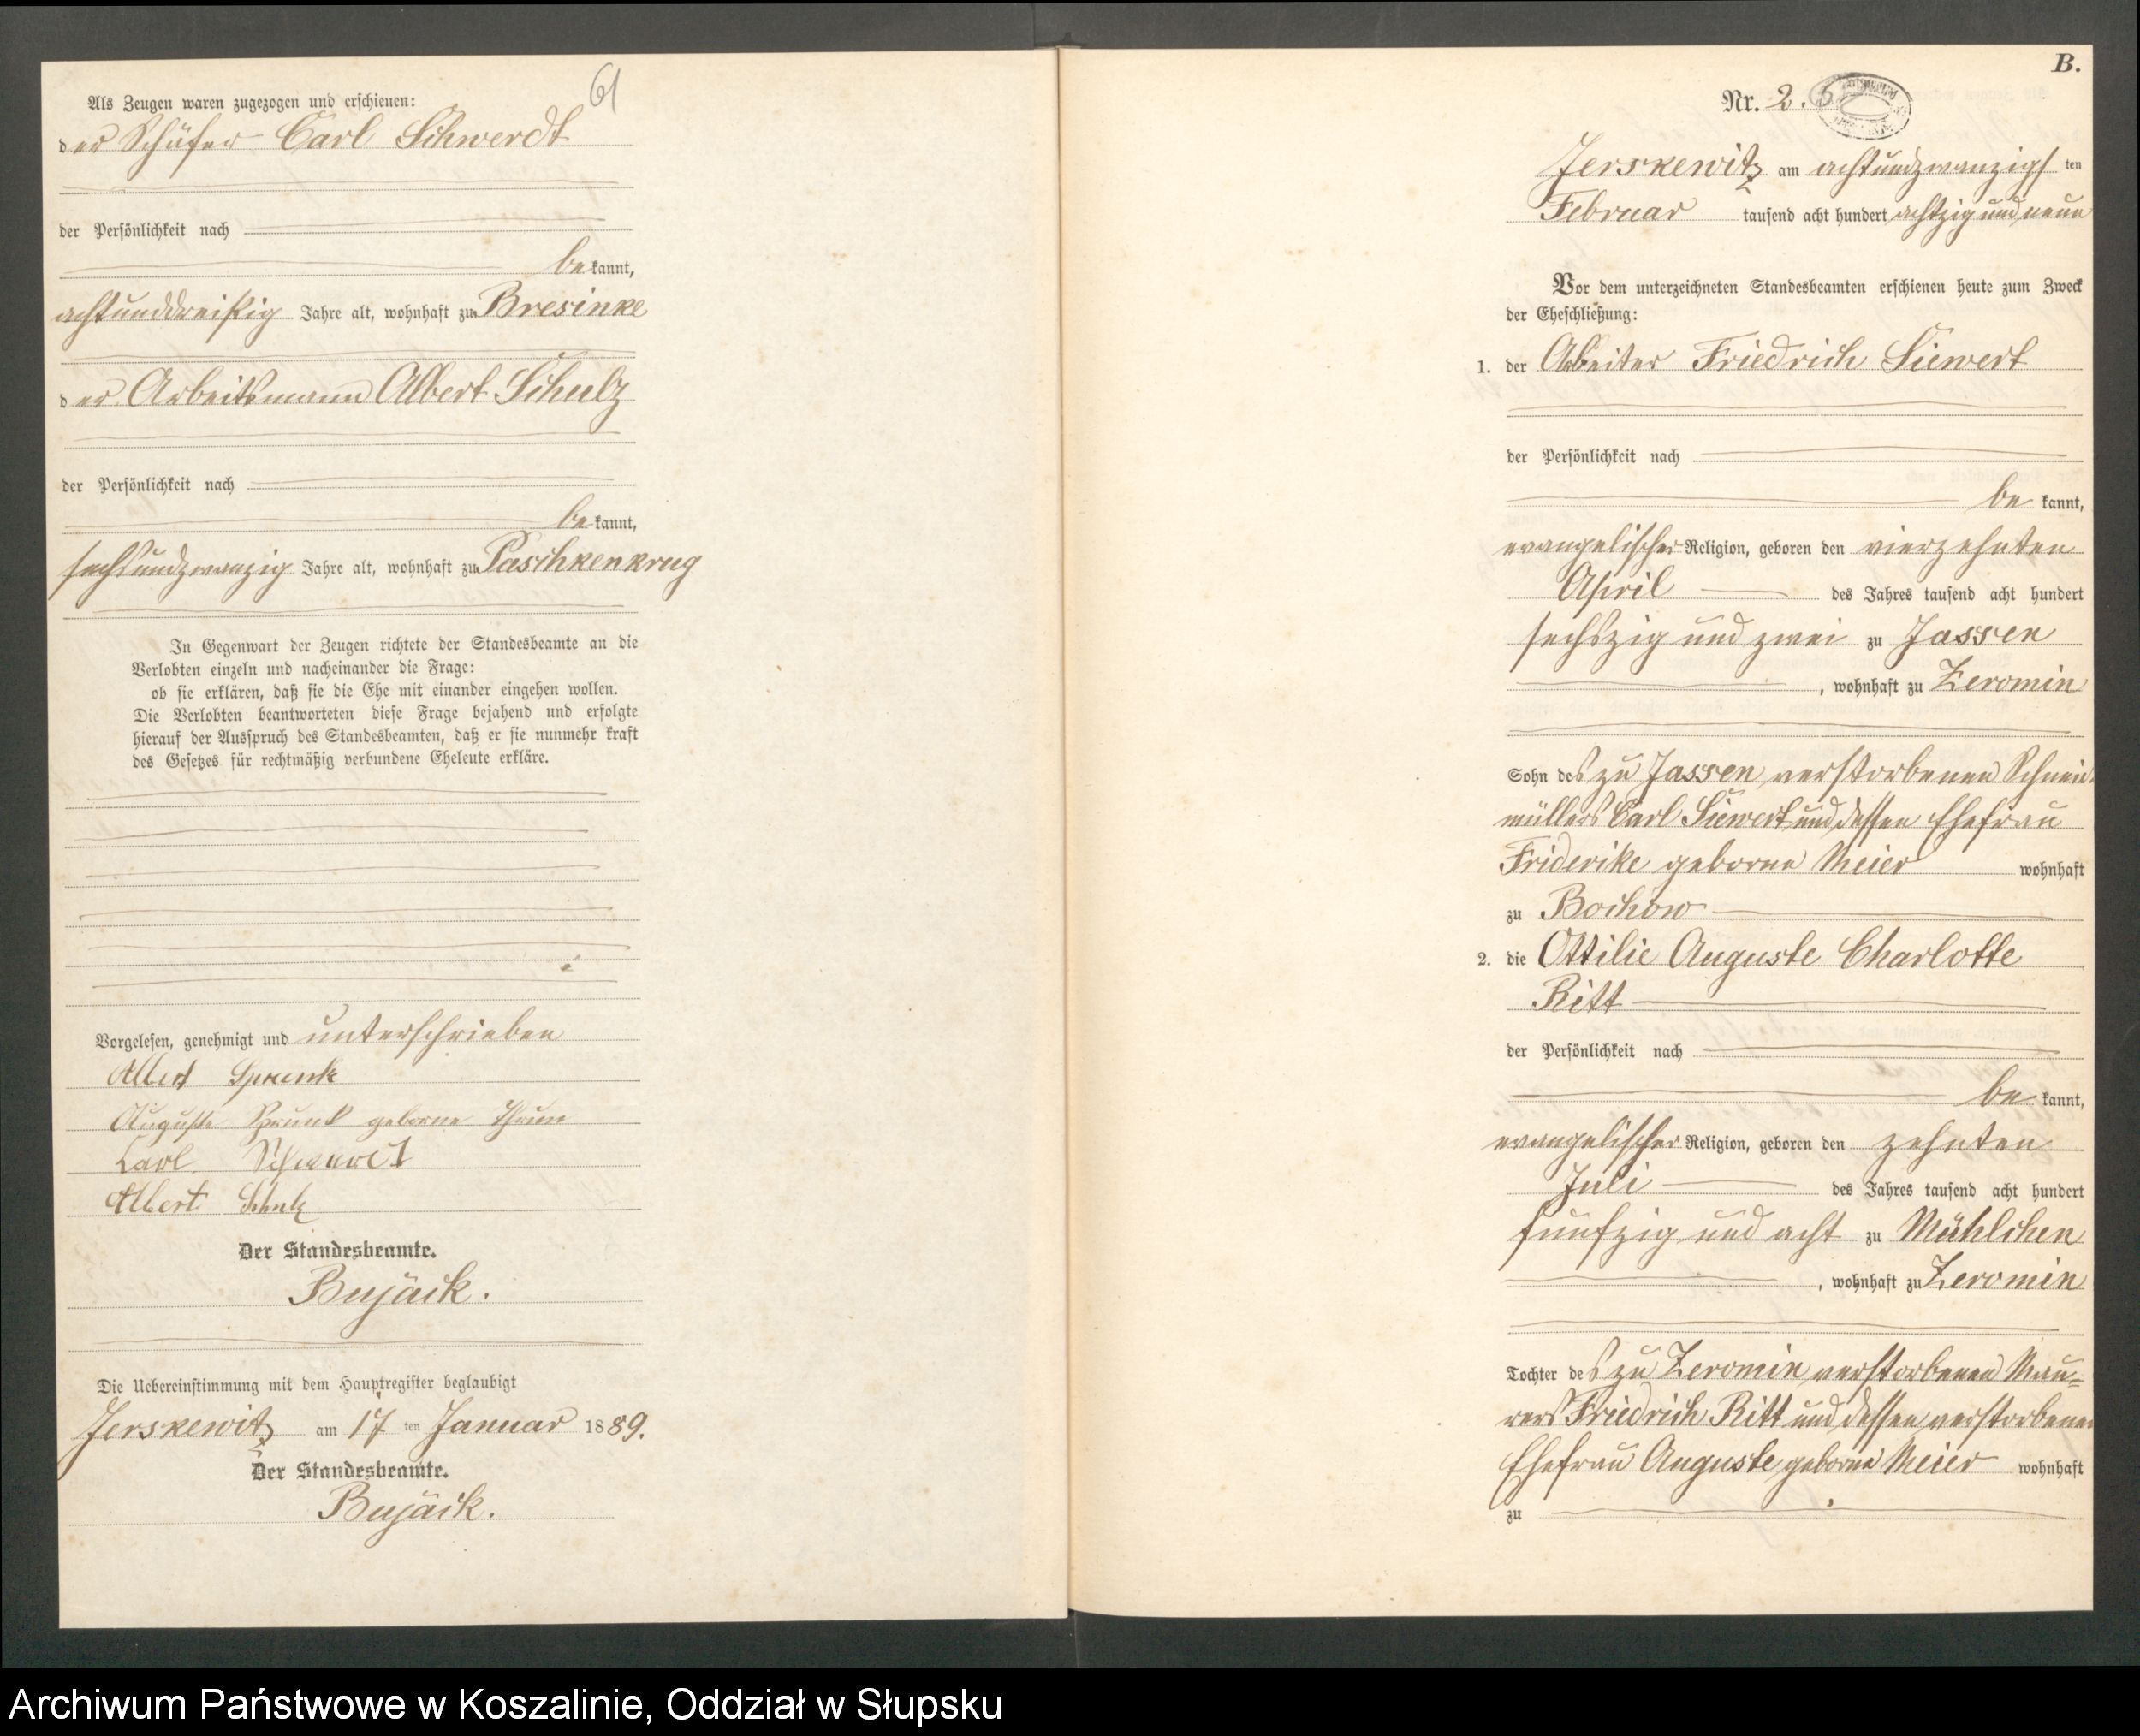 61
Als Zeugen waren zugezogen und erschienen:
der Schäfer Carl Schwerdt
der Persönlichkeit nach
bekannt,
achtunddreißig Jahre alt, wohnhaft zu Bresinke
der Arbeitsmann Albert Schulz
der Persönlichkeit nach
bekannt,
sechsundzwanzig Jahre alt, wohnhaft zu Paschkenkrug
In Gegenwart der Zeugen richtete der Standesbeamte an die
Verlobten einzeln und nacheinander die Frage:
ob sie erklären, daß sie die Ehe mit einander eingehen wollen.
Die Verlobten beantworteten diese Frage bejahend und erfolgte
hierauf der Ausspruch des Standesbeamten, daß er sie nunmehr kraft
des Gesetzes für rechtmäßig verbundene Eheleute erkläre.
Vorgelesen, genehmigt und unterschrieben
Albert Sprunk
Auguste Sprunk geborne Thrun
Carl Schwerdt
Albert Schulz
Der Standesbeamte.
Bujack.
Die Uebereinstimmung mit dem Hauptregister beglaubigt
Jerskewitz am 17 ten Januar 1889.
Der Standesbeamte.
Bujack.
B.
Nr. 2.
Jerskewitz am achtundzwanzigsten
Februar tausend acht hundert achtzig und neun
Vor dem unterzeichneten Standesbeamten erschienen heute zum Zweck
der Eheschließung:
1. der Arbeiter Friedrich Siewert
der Persönlichkeit nach
be kannt,
evangelischer Religion, geboren den vierzehnten
April des Jahres tausend acht hundert
sechszig und zwei zu Jassen
, wohnhaft zu Zeromin
Sohn des zu Jassen verstorbenen Schneide
müllers Carl Siewert und dessen Ehefrau
Friderike geborne Meier wohnhaft
zu Bochow
2. die Ottilie Auguste Charlotte
Ritt
der Persönlichkeit nach
be kannt,
evangelischer Religion, geboren den zehnten
Juli des Jahres tausend acht hundert
fünfzig und acht zu Mühlchen
, wohnhaft zu Zeromin
Tochter des zu Zeromin verstorbenen Mau=
rers Friedrich Ritt und dessen verstorbenen
Ehefrau Auguste geborne Meier wohnhaft
zu
Archiwum Państwowe w Koszalinie, Oddział w Słupsku